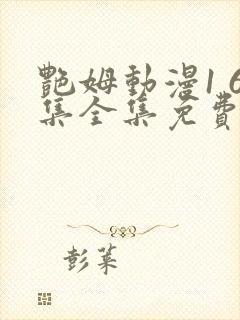 艷姆動漫16
集全集免費
彭菜